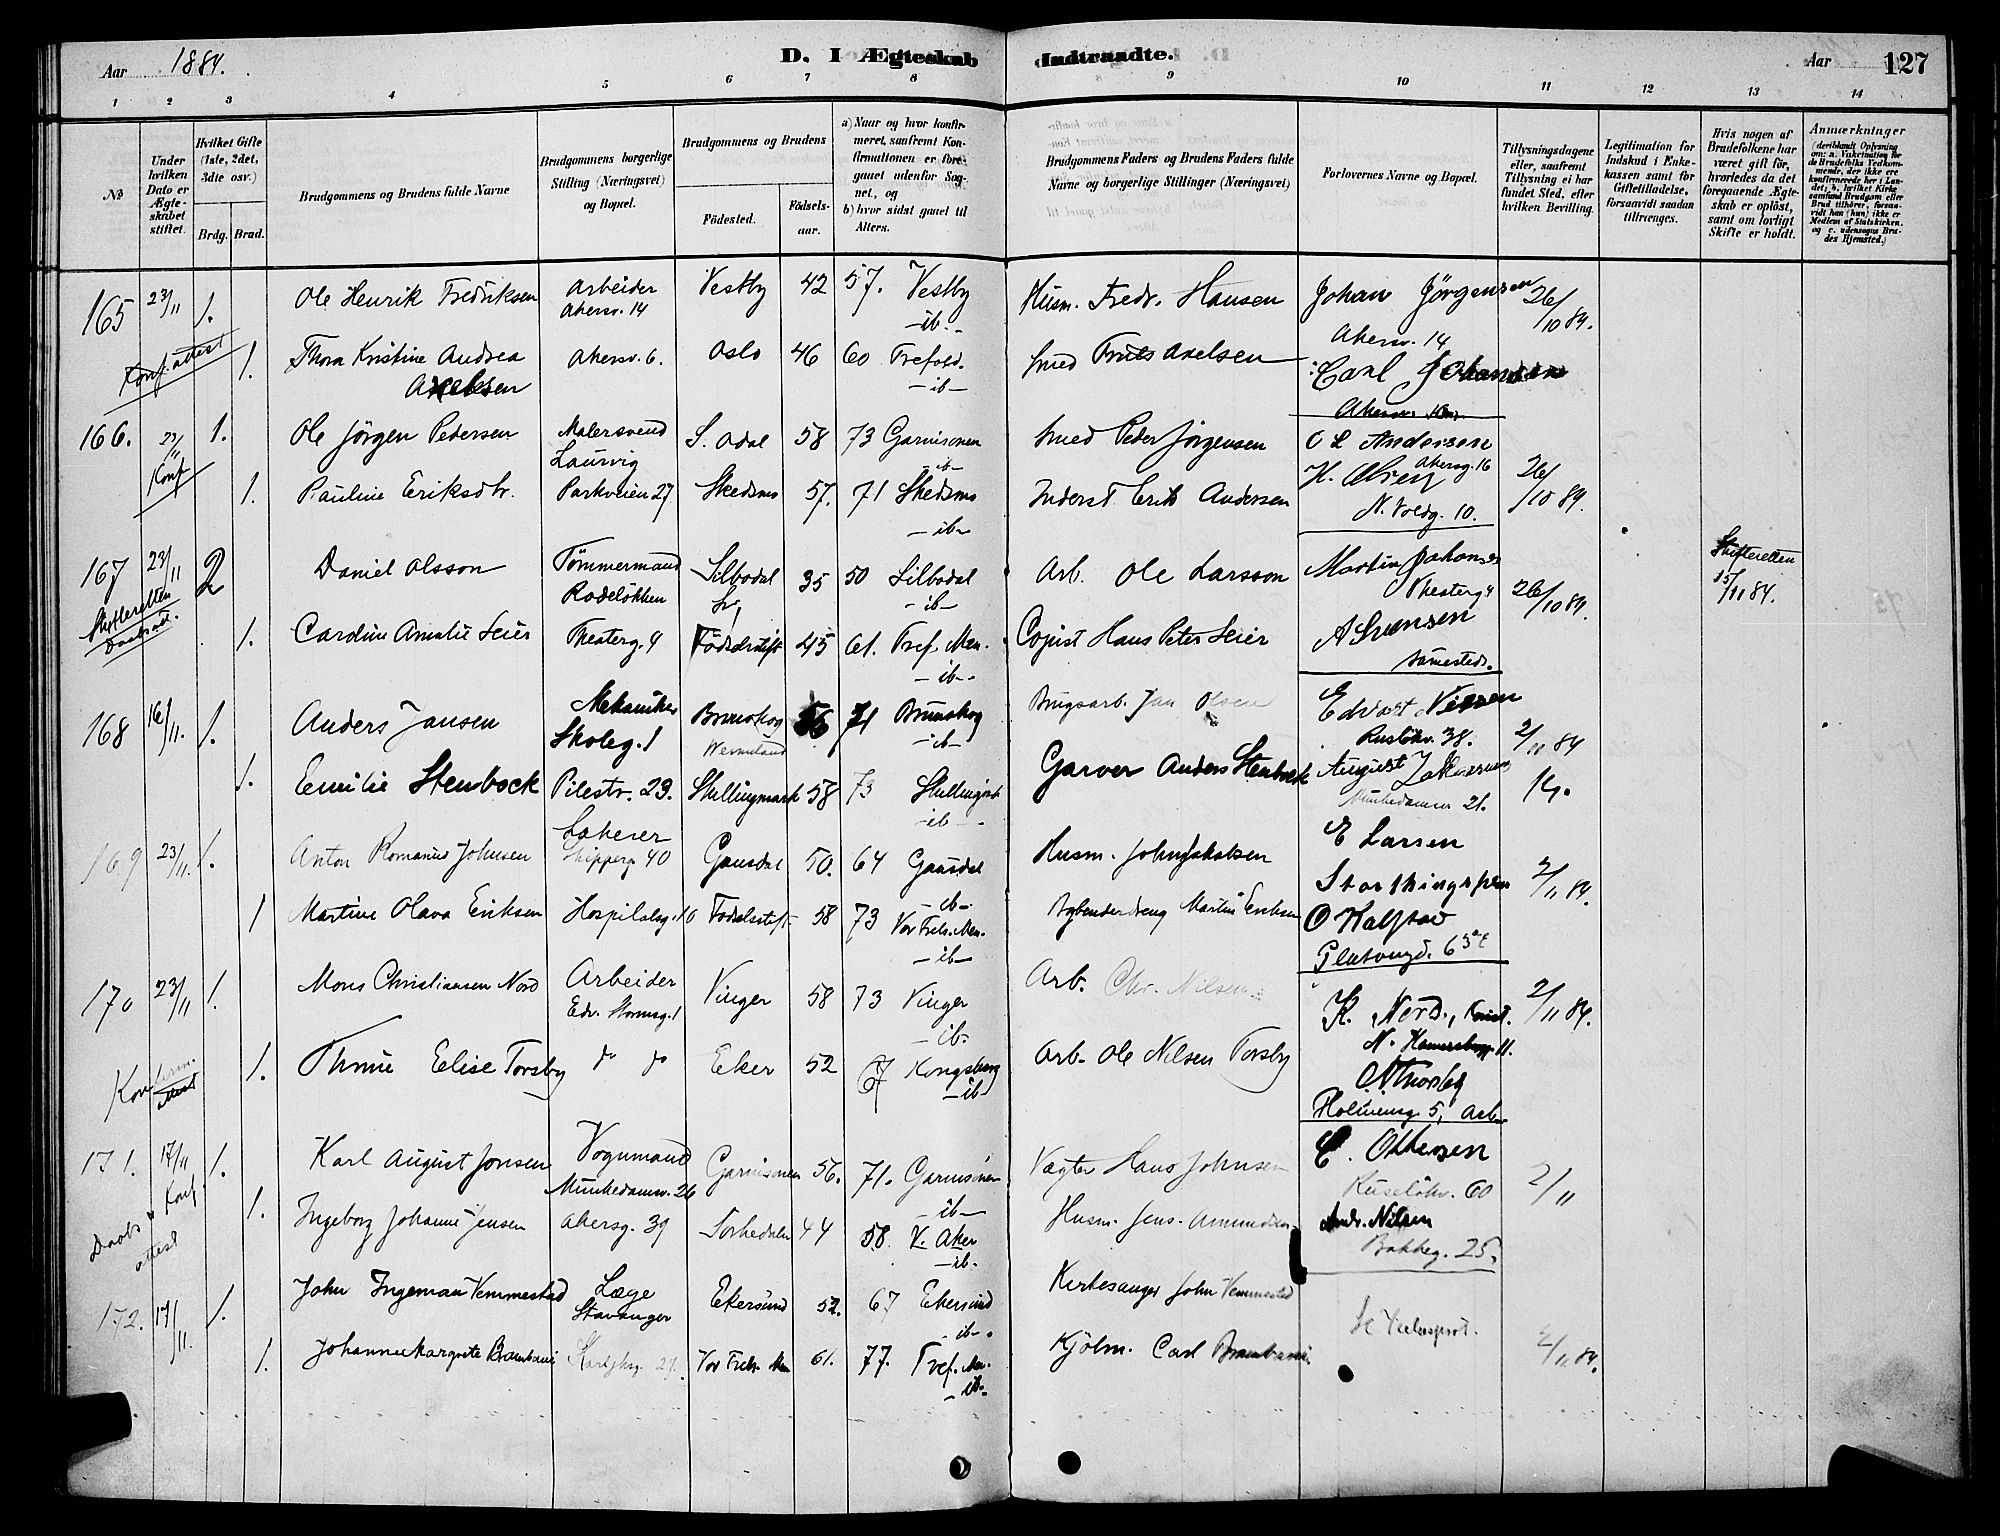 Aar 1884. D. I Ægteskab Indtraadte. Aar 127
1 2 3 4 5 6 7 8 9 10 11 12 13 14
No
Under hvilken Dato er Ægteskabet stiftet.
Hvilket Gifte (1ste, 2det, 3die osv.)
Brdg. Brud.
Brudgommens og Brudens fulde Navne
Brudgommens borgerlige Stilling (Næringsvei) og Bopæl.
Brudgommens og Brudens
Fødested. Fødselsaar.
a) Naar og hvor konfirmeret, saafremt Konfirmationen er foregaaet udenfor Sognet, og
b) hvor sidst gaaet til Alters.
Brudgommens Faders og Brudens Faders fulde Navne og borgerlige Stillinger (Næringsvei)
Forlovernes Navne og Bopæl.
Tillysningsdagene eller, saafremt Tillysning ei har fundet Sted, efter hvilken Bevilling.
Legitimation for Indskud i Enkekassen samt for Giftetilladelse, forsaavidt saadan tiltrænges.
Hvis nogen af Brudefolkene har været gift før, hvorledes da det foregaaende Ægteskab er opløst, samt om lovligt Skifte er holdt.
Anmærkninger (deriblandt Oplysning om: a. Vakcination for de Brudefolks Vedkommende, der ikke ere konfirmerede her i Landet; b. hvilket Kirkesamfund Brudgom eller Brud tilhører, forsaavidt han (hun) ikke er Medlem af Statskirken, og c. udensogns Brudes Hjemsted.)
165 23/11 1. Ole Henrik Fredriksen Arbeider Akersv. 14 Vestby 42 57. Vestby Husm. Fredr. Hansen Johan Jørgensen 26/10 84.
-ib.-
Akersv. 14
Konf. attest 1. Thora Kristine Andrea Akersv. 6. Oslo 46 60 Trefold. Smed Truls Axelsen Carl Johansen
Axelsen -ib-
166. 23/11 1. Ole Jørgen Pedersen Malersvend S. Odal 58 73 Garnisonen Smed Peder Jørgensen O L Andersen
Laurvig -ib- Akersg. 16
Konf 1. Pauline Eriksdtr. Parkveien 27 Skedsmo 57. 71 Skedsmo Inderst Erik Andersen 26/10 84.
-ib- N. Voldg. 10.
167 23/11 2 Daniel Olsson Tømmermand Silbodal 35 50 Silbodal Arb. Ole Larsson Martin 26/10 84. Skifteretten 15/11 84.
Rodeløkken -ib- Theaterg 4
Skifteretten
Daabsatt. 1. Cardine Amalie Seier Theaterg. 4 Fødselsstift 45 61. Tref. Men. Copist Hans Peter Seier A Svensen
-ib- samesteds.
168 16/11. 1. Anders Jansen Mekaniker Brunskog 56 71 Brunskog Brugsarb. Jan Olsen Edvart Nilsen
Skoleg. 1 Wermeland -ib- Rusløkv. 38. 2/11 84
1. Emilie Stenbock Pilestr. 23. Skillingmark 58 73 Garver Anders Stenbock August
-ib- Munkedamsv 21.
169 23/11. 1. Anton Romanus Johnsen Lakerer Gausdal 50. 64 Gausdal Husm. John Jakobsen E Larsen
Skipperg. 40 -ib- 2/11 84.
1 Martine Olava Eriksen Hospitalsg. 10 Fødselsstift 58 73 Vor Frels. Men. Martin Eriksen
-ib-
170 23/11 1. Mons Christiansen Nord Arbeider Vinger 58 73 Vinger Arb. Chr. Nilsen K. Nord, 2/11 84.
Edv. Stormsg. 1 -ib-
Konfirm. attest 1. Elise Torsby do do Eker 52 67 Kongsberg Arb. Ole Nilsen Torsby
-ib- Holmensg. 5, Arb.
171. 17/11 1. Karl August Jonsen Vognmand Garnisonen 56. 71. Garnisonen Vægter Hans Johnsen E. Ottersen
Munkedamsv. 26 -ib- Ruseløkv. 60 2/11
Daabs & Konf. attest 1. Ingeborg Johanne Jensen Akersg. 39 Sørkedalen 44 58. V. Aker Husm. Jens Amundsen Andr. Nilsen
-ib- Bakkeg. 25.
172. 17/11. 1. John Ingeman Vemmestad Læge Ekersund 52. 67 Ekersund Kirkesanger John Vemmestad
Stavanger -ib-
1. Johanne Margrete 27. Vor Frels. Men 61. 77. Tref. Men. Kjøbm. Carl 2/11 84.
-ib-